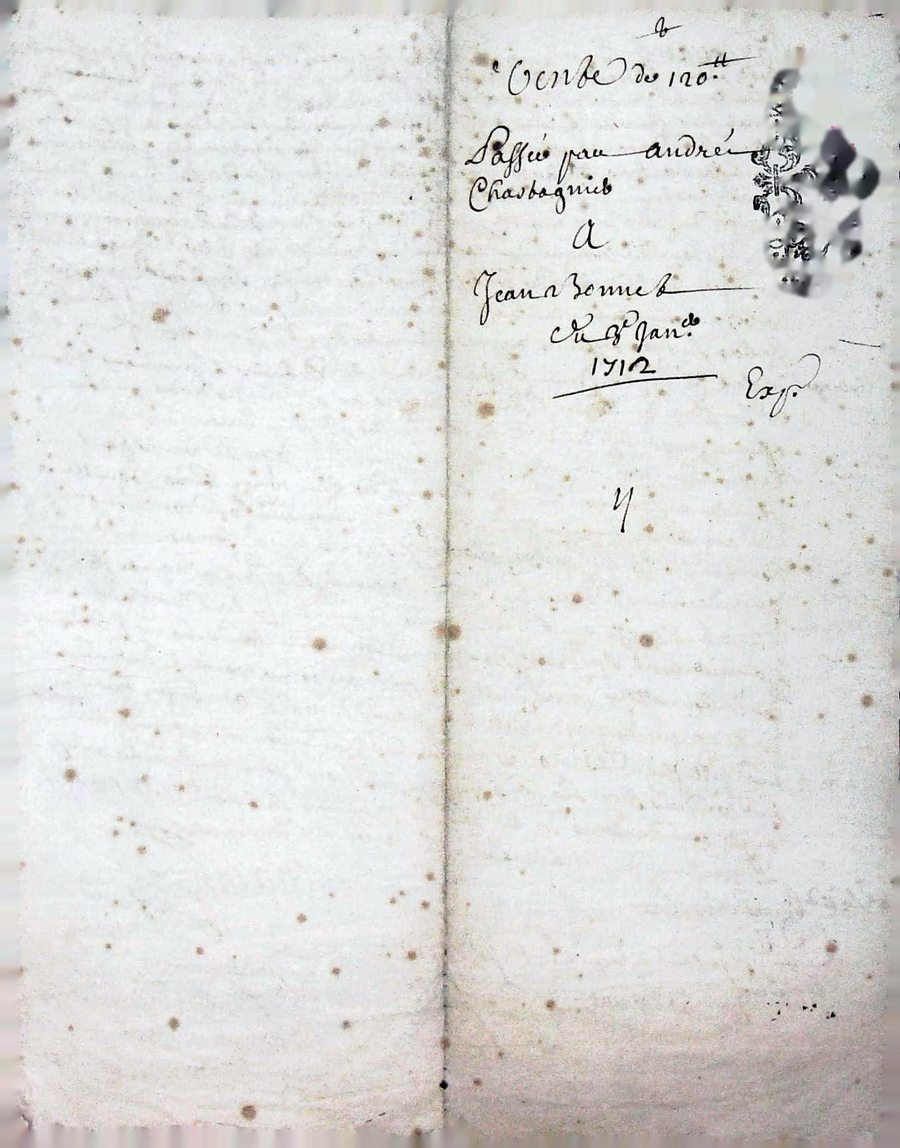 b
Vente de 120.tt
Passée par André
Chastagnie
A
Jean Bonnet
du 3e Jan.
1712
Exp.